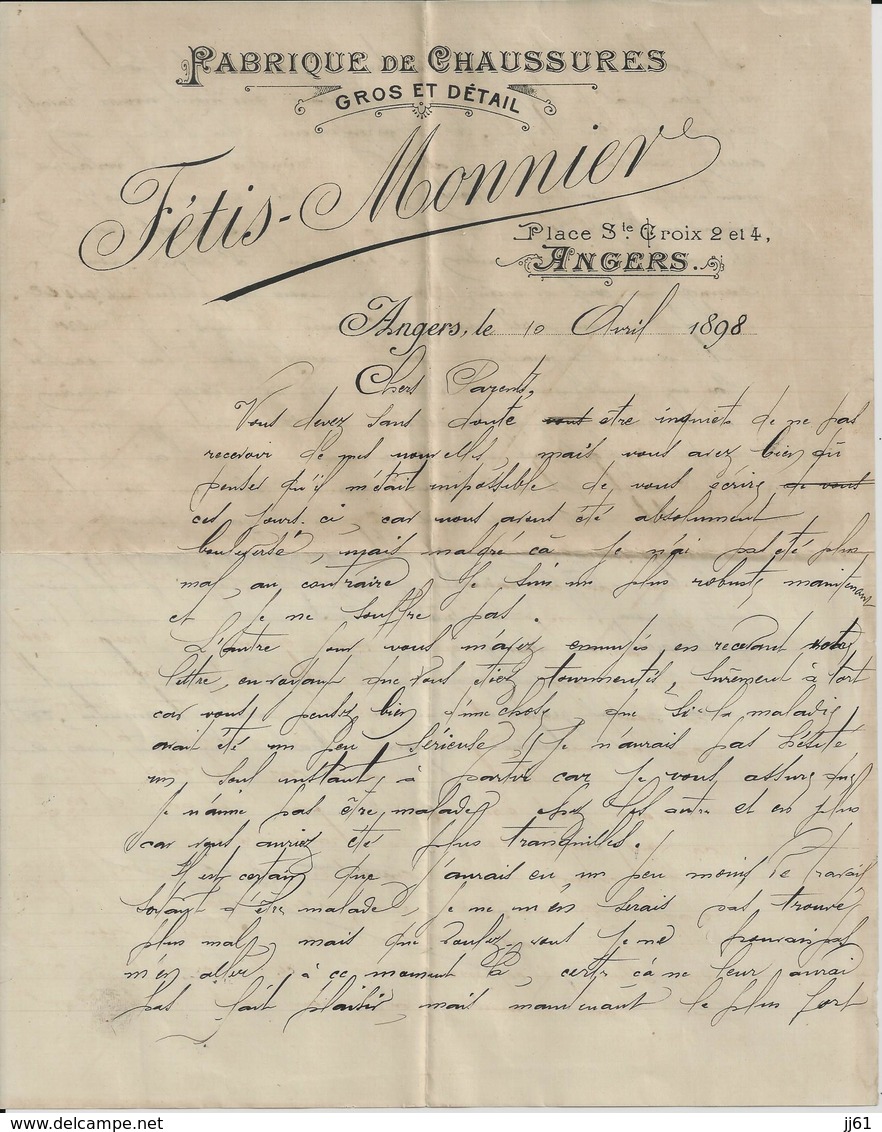 FABRIQUE DE CHAUSSURES
GROS ET DÉTAIL
Fétis-Monnier
Place Ste Croix 2 et 4,
ANGERS.
Angers, le 10 Avril 1898
Chers Parents,
Vous devez sans doute vous etre inquiets de ne pas
recevoir de mes nouvelles, mais vous avez bien dû
penser qu'il m'était impossible de vous écrire de vous
ces jours-ci, car nous avons été absolument
bouleversé, mais malgré cà je n'ai pas été plus
mal, au contraire je suis un plus robuste maintenant
et je ne souffre pas.
L'autre jour vous m'avez ennuyés, en recevant votre
lettre, en voyant que vous étiez tourmentés, sûrement à tort
car vous pensez bien d'une chose, que si la maladie
avait été un peu sérieuse, je n'aurais pas hésité
un seul instant, à partir car je vous assure que
je n'aime pas être malade chez les autres et en plus
car vous auriez été plus tranquilles.
Il est certain que j'aurais eu un peu moins de travail
sortant d'être malade, je ne m'en serais pas trouvé
plus mal, mais que voulez-vous je ne pouvais pas
m'en aller à ce moment là, certes cà ne leur aurai
pas fait plaisir, mais maintenant le plus fort
jj61